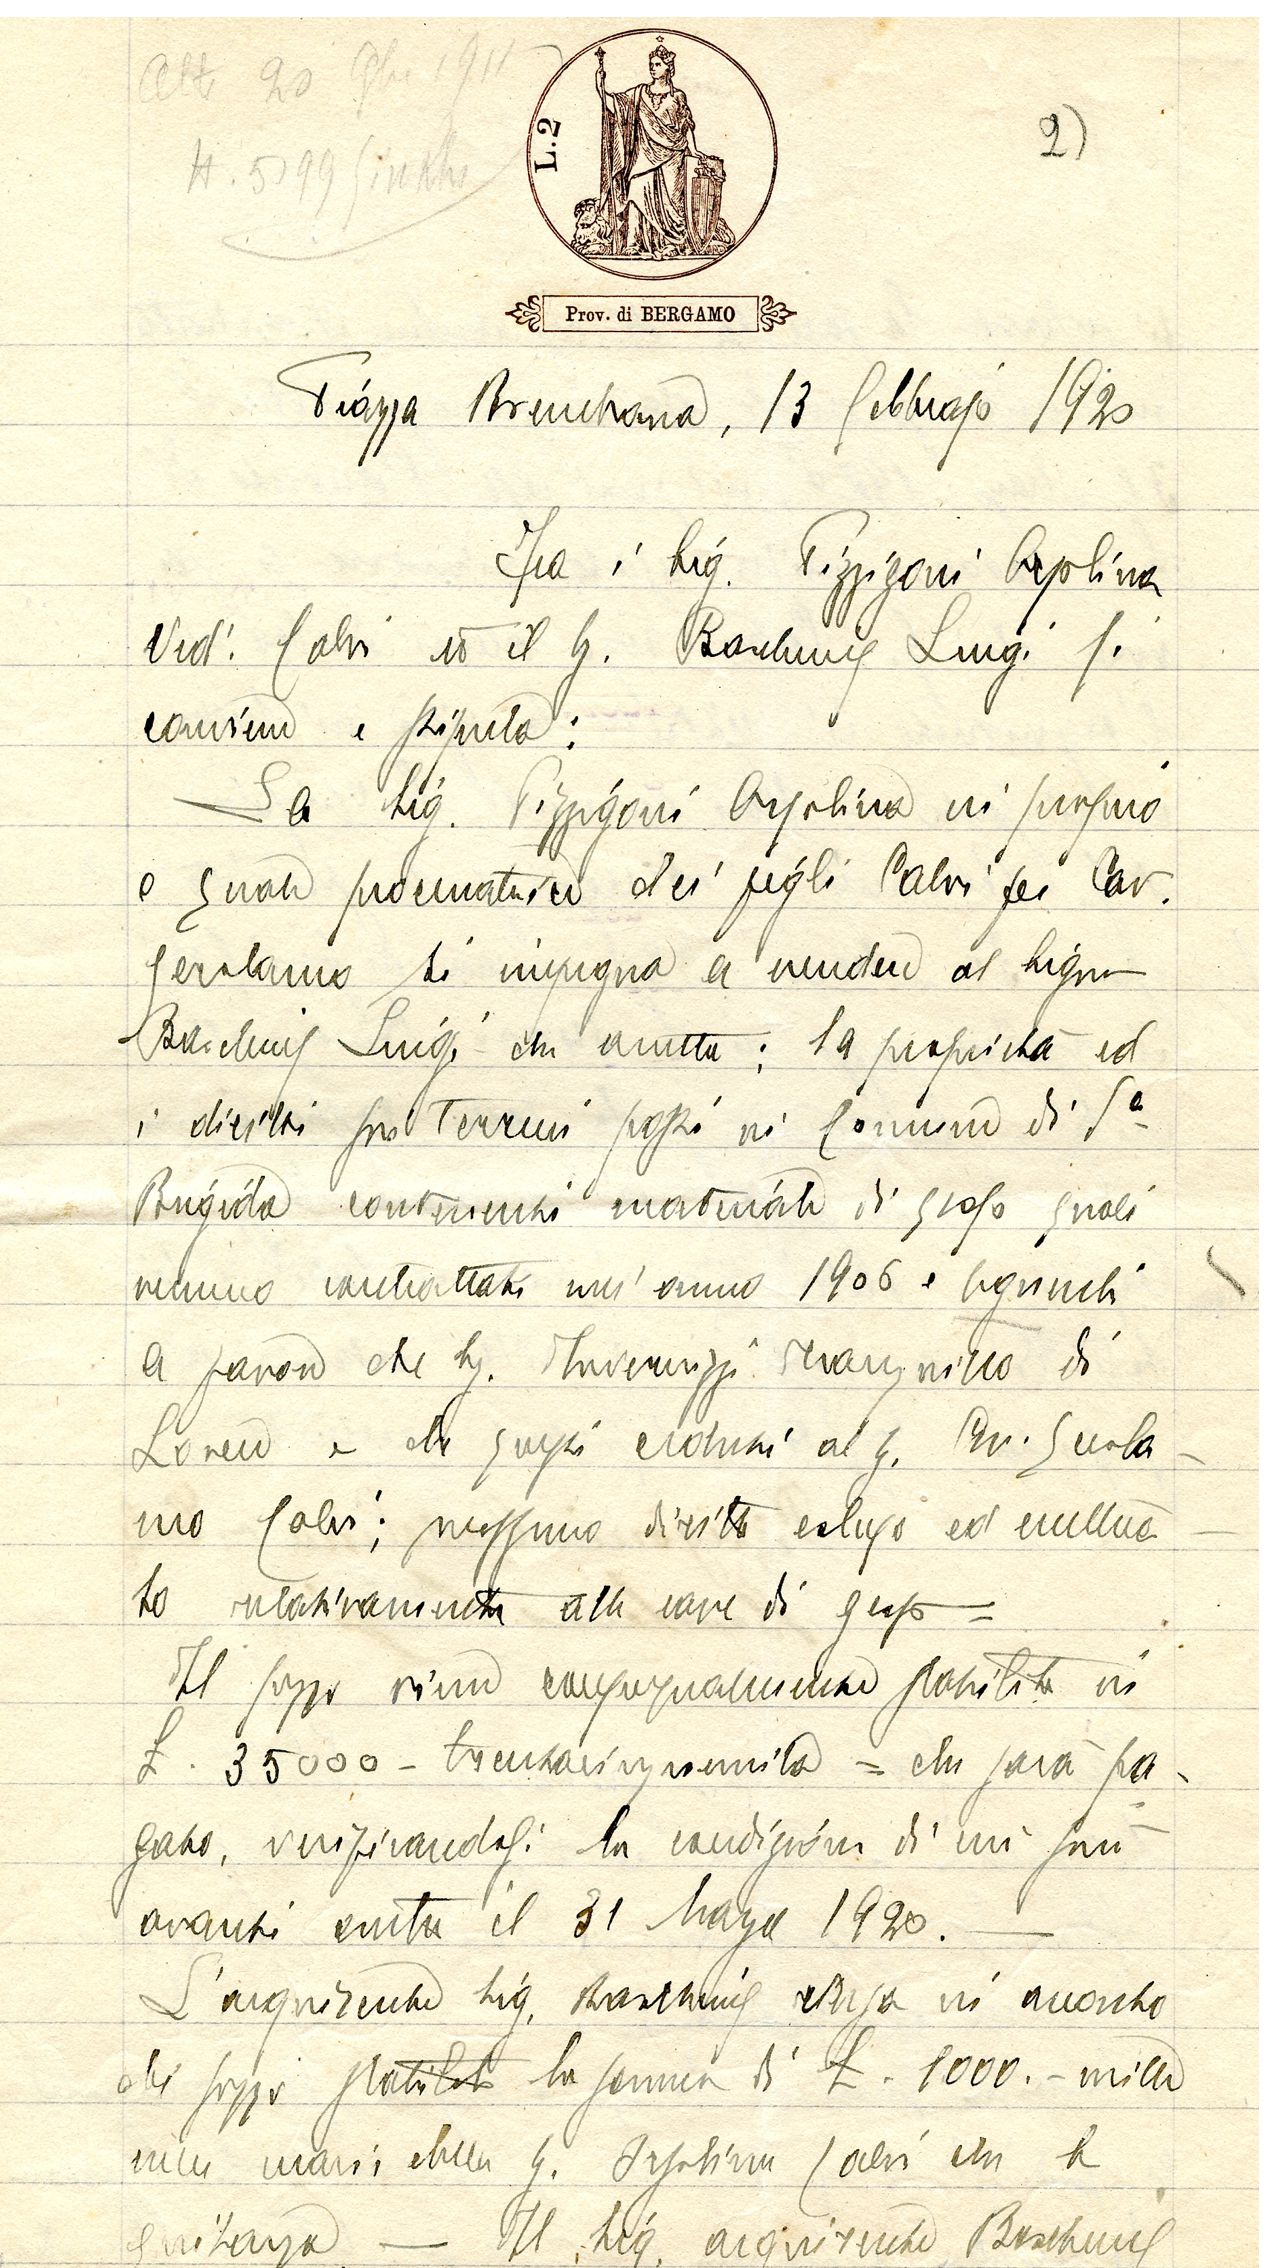 Atti 20 9bre 1911
N. 5199
L. 2
2)
Prov. di BERGAMO
Piazza Brembana, 13 febbrajo 1920
Fra i Sig. Pizzigoni Orsolina
Ved. Calvi ed il Sg. Luigi si
conviene e stipula:
La Sig. Pizzigoni Orsolina in proprio
e quale procuratrice dei figli Calvi fu Cav.
Gerolamo si impegna a vendere al Signor
Luigi che accetta; la proprietà ed
i diritti sui Terreni posti in Comune di Sa
Brigida contenenti materiale di gesso quali
vennero contrattati nell'anno 1906 e seguenti
a favore del Sg. Invernizzi Tranquillo di
e da questi ceduti al Sg. Cav. Gerola-
mo Calvi; nessuno diritto escluso ed eccettua-
to relativamente alle cave di gesso =
Il prezzo viene stabilito in
£. 35000 - trentacinquemila = che sarà pa-
gato, verificandosi la condizione di cui
avanti entro il 31 Marzo 1920. —
L'acquirente Sig. versa in acconto
del prezzo stabilito la somma di £. 1000. - mille
nelle mani della Sg. Orsolina Calvi che
quitanza — Il Sig. acquirente